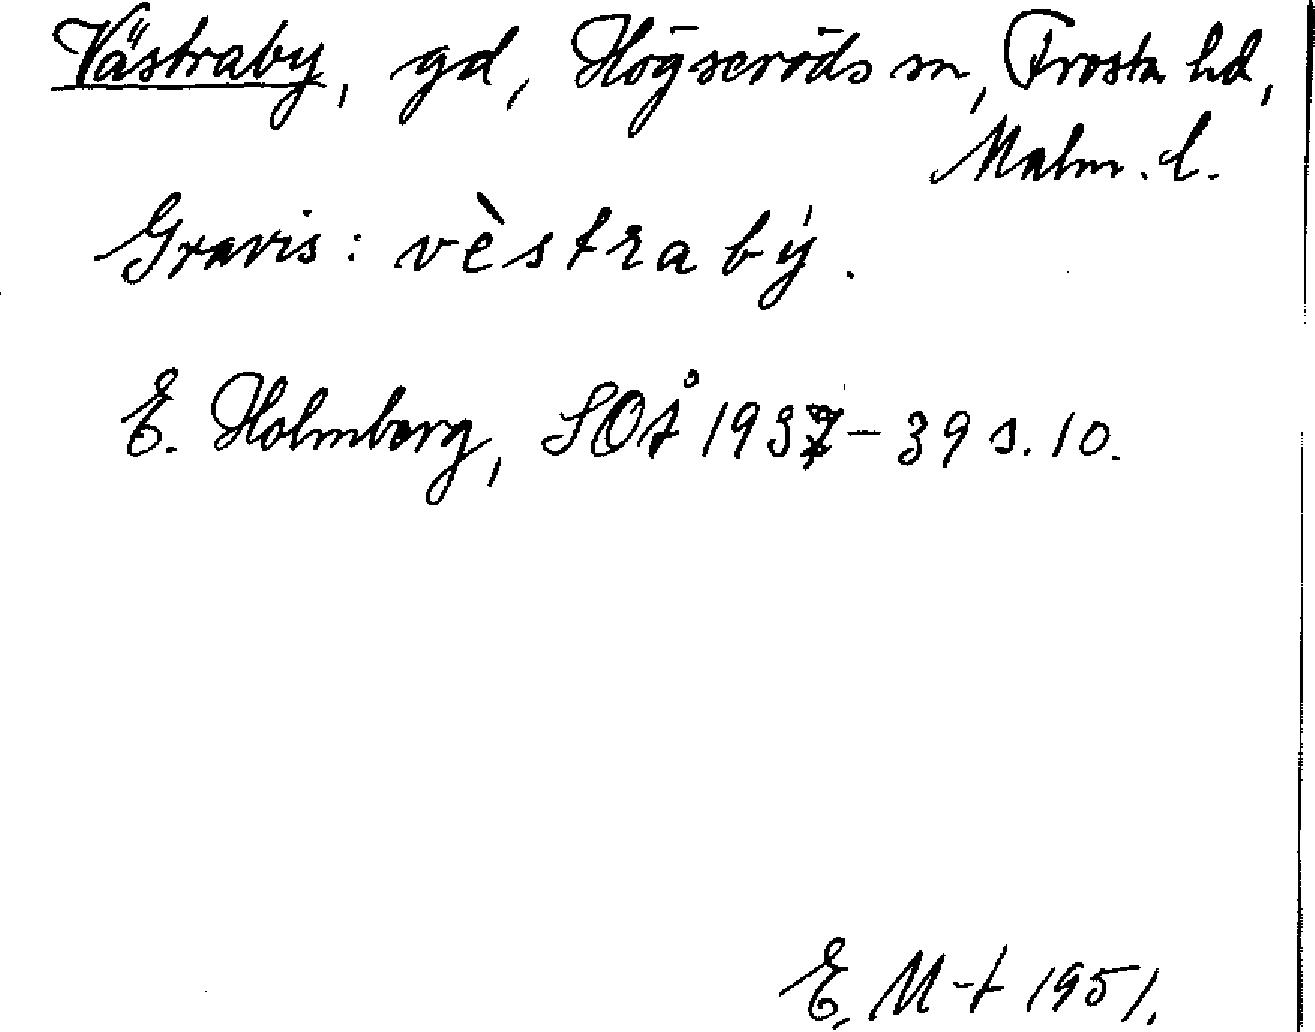 Västraby, gd, Högseröds sn, Frosta hd,
Malm. l.
Gravis: vèstrabý.
E. Holmberg, SOÅ 1937-39 s. 10.
E. M-t 1951.